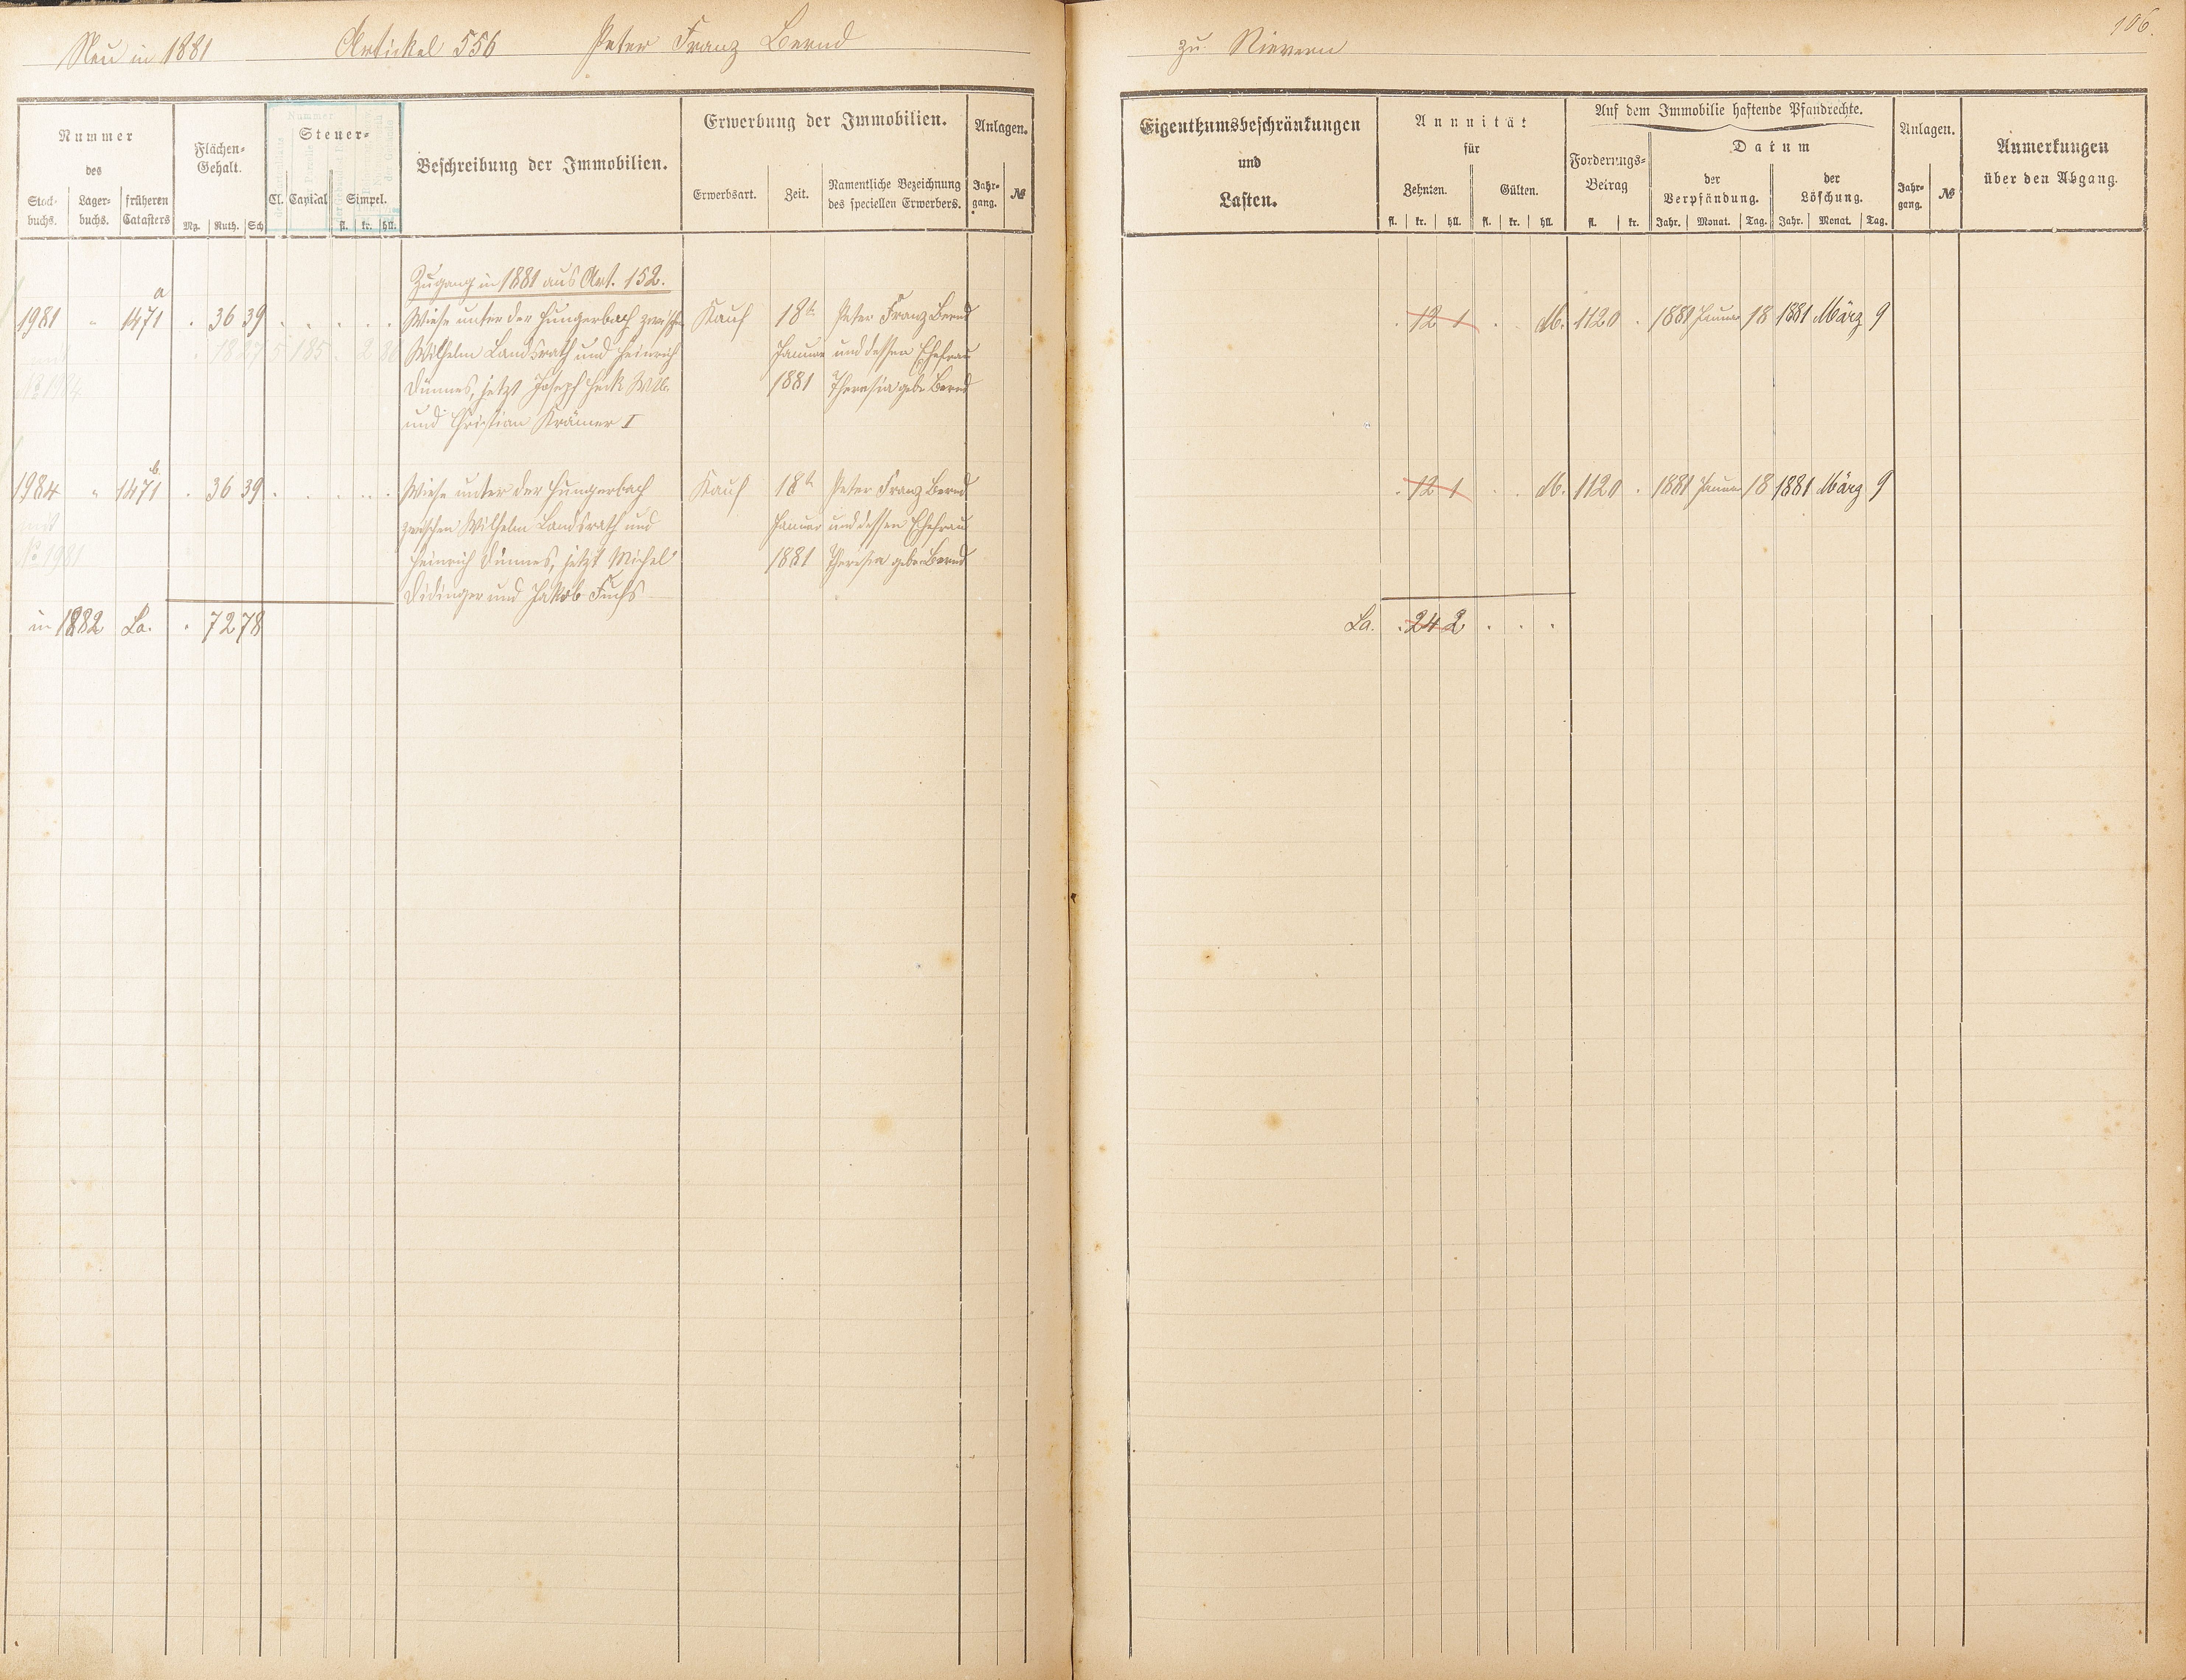 Neu in 1881 Artickel 556 Peter Franz Bernd
zu Nievern 106.
Nummer
des
Stock-
buchs.
Lager-
buchs.
früheren
Catasters
Flächen-
Gehalt.
Mg. Ruth. Sch
Steuer-
Cl. Capital Simpel.
fl. kr. hll.
Beschreibung der Immobilien.
Erwerbung der Immobilien.
Erwerbsart. Zeit. Namentliche Bezeichnung
des speciellen Erwerbers.
Anlagen.
Jahr-
gang. №
Eigenthumsbeschränkungen
und
Lasten.
Annuität
für
Zehnten. Gülten.
fl. kr. hll. fl. kr. hll.
Auf dem Immobilie haftende Pfandrechte.
Forderungs-
Betrag
fl. kr.
Datum
der
Verpfändung.
der
Löschung.
Jahr. Monat. Tag. Jahr. Monat. Tag.
Anlagen.
Jahr-
gang. №
Anmerkungen
über den Abgang.
Zugang in 1881 aus Art. 152.
1981 " 1471 a . 36 39 Wiese unter der Hungerbach zwischen Kauf 18t Peter Franz Bernd
18 27 5 185 2 30 Wilhelm Landsrath und Heinrich Januar und dessen Ehefrau
№ 1984 Dünnes, jetzt Joseph Heck Wtb. 1881 Theresia geb. Bernd
und Christian Krämer I
12 1 M. 1120 . 1881 Januar 18 1881 März 9
1984 " 1471 b . 36 39 Wiese unter der Hungerbach Kauf 18t Peter Franz Bernd
mit zwischen Wilhelm Landsrath und Januar und dessen Ehefrau
№ 1981 Heinrich Dünnes, jetzt Michel 1881 Theresia geb. Bernd
Didinger und Jakob Fuchs
12 1 M. 1120 . 1881 Januar 18 1881 März 9
in 1882 La. . 72 78
La. . 24 2 . . .